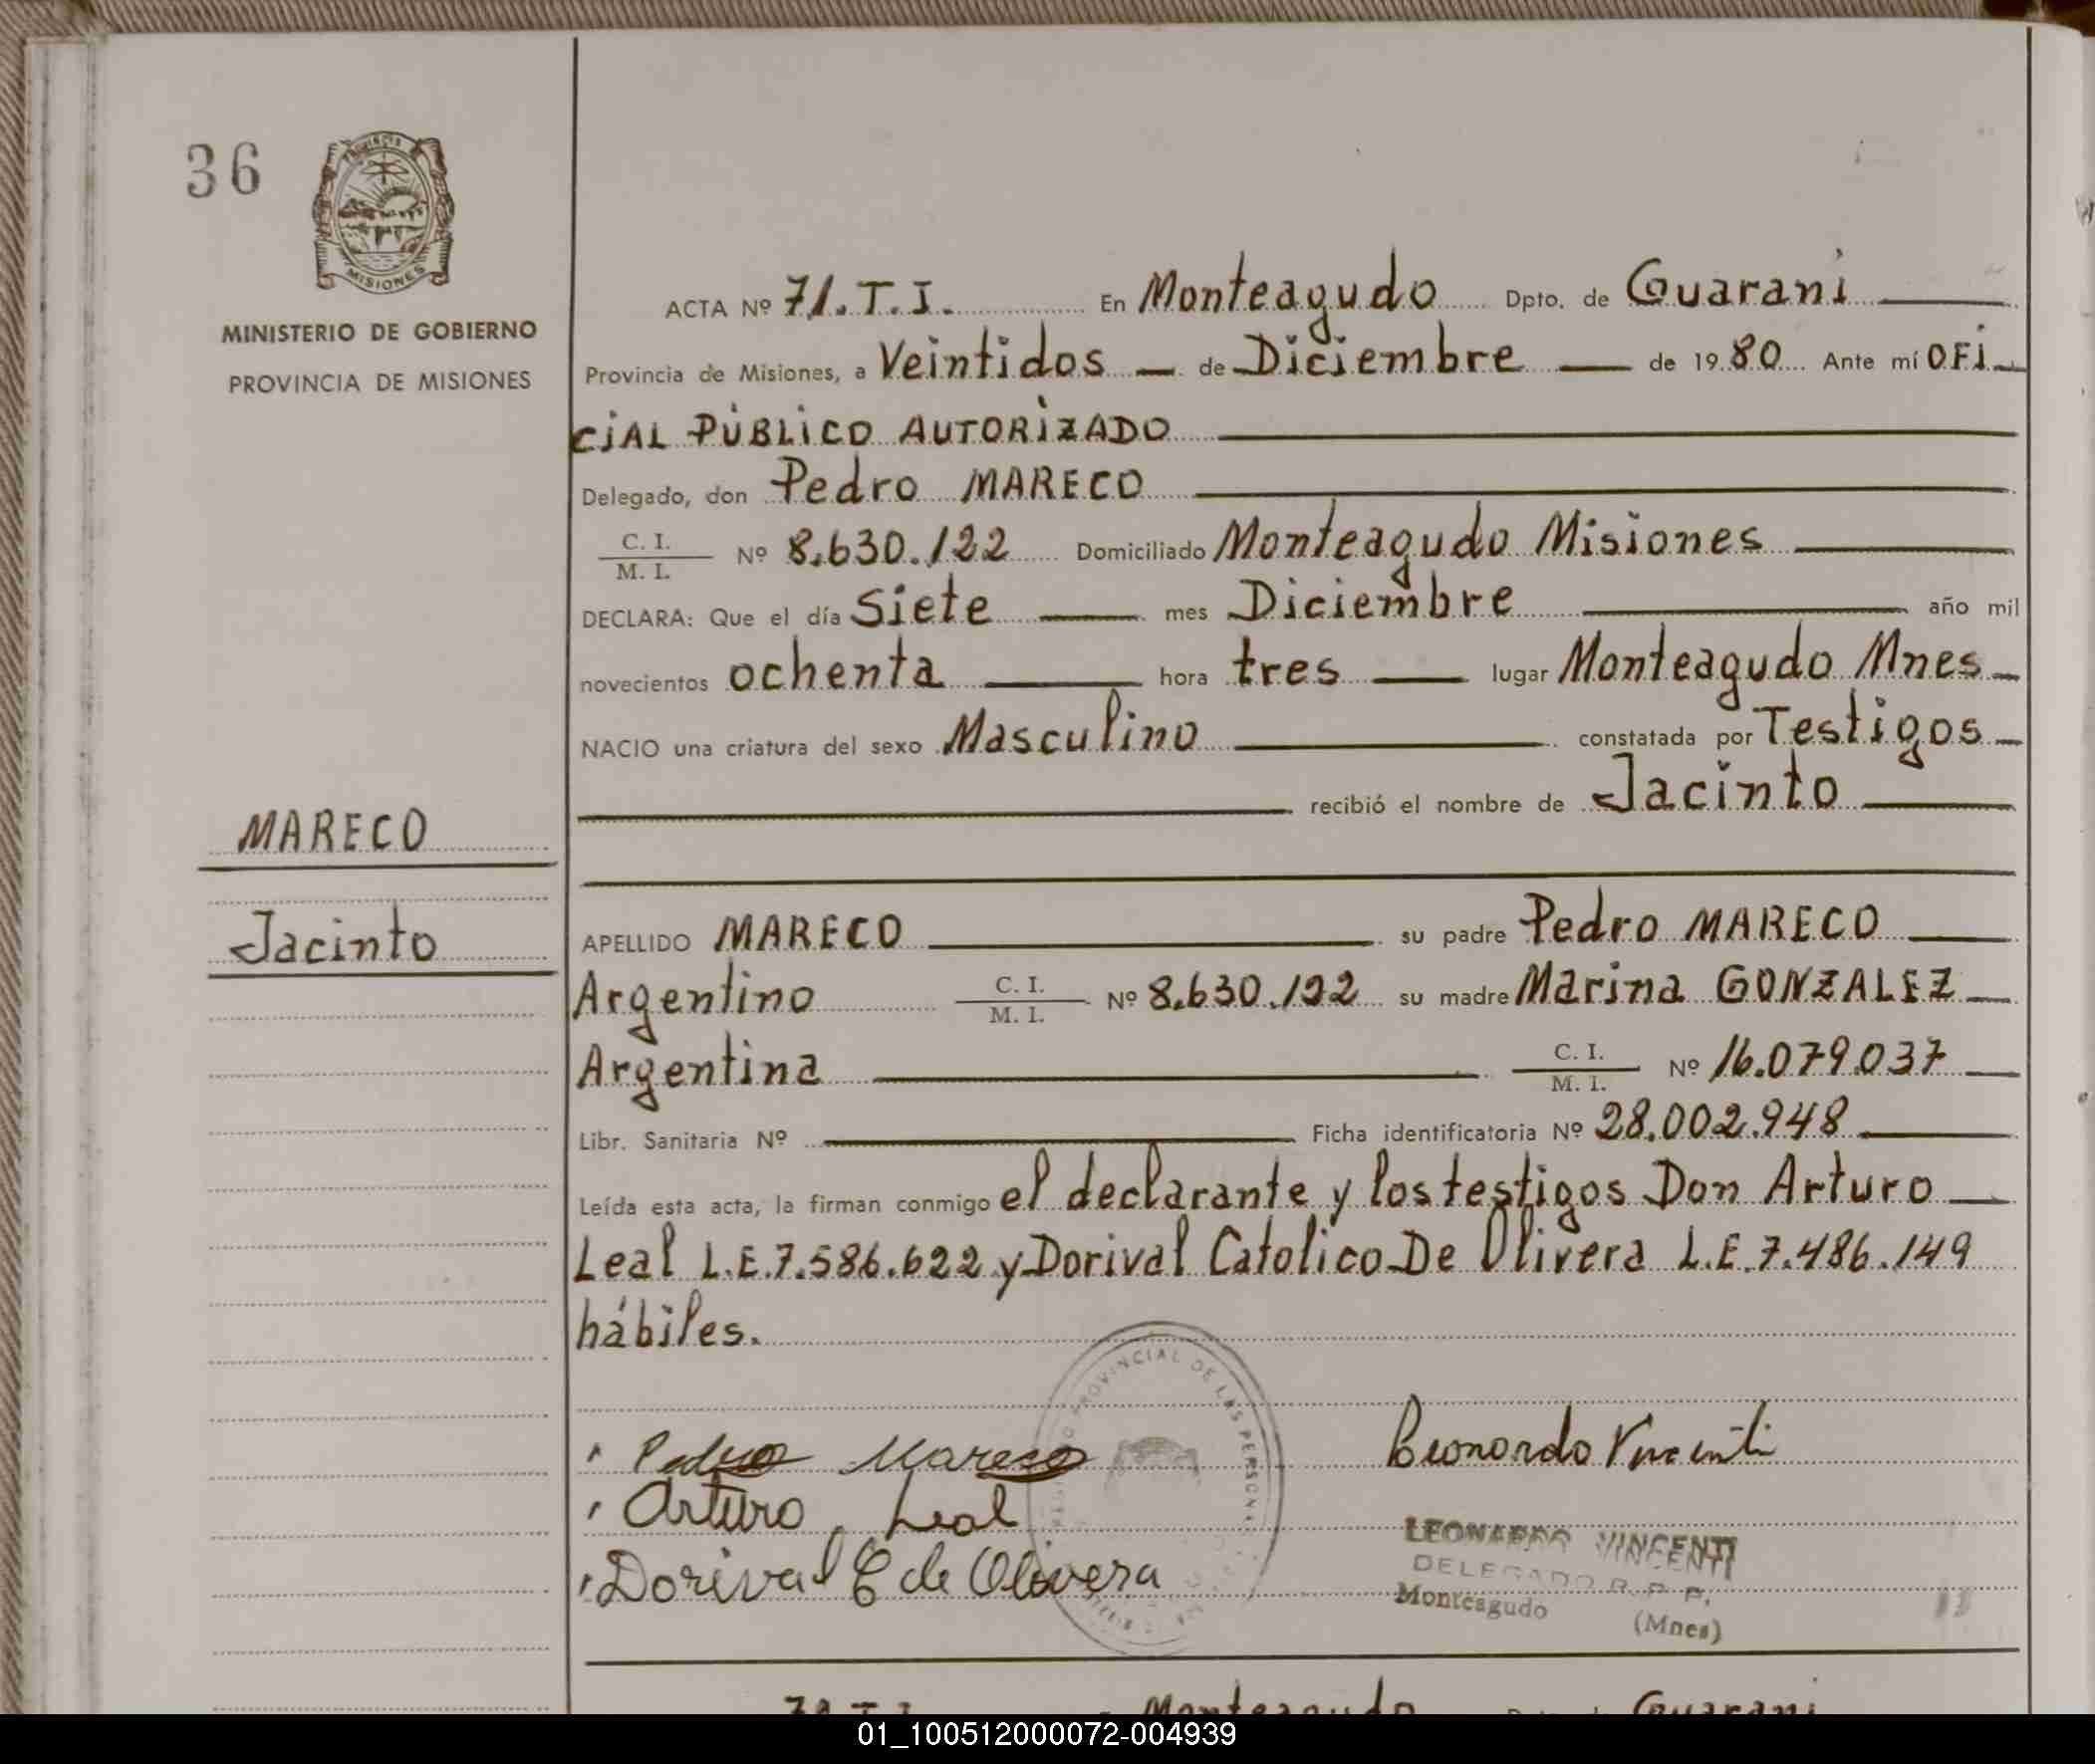 36
PROVINCIA
MISIONES
MINISTERIO DE GOBIERNO
PROVINCIA DE MISIONES
MARECO
Jacinto
ACTA Nº 71.T.I. En Monteagudo Dpto. de Guaraní
Provincia de Misiones, a Veintidos de Diciembre de 1980 Ante mí OFI
CIAL PÚBLICO AUTORIZADO
Delegado, don Pedro MARECO
C. I.
M. I. Nº 8.630.122 Domiciliado Monteagudo Misiones
DECLARA: Que el día Siete mes Diciembre año mil
novecientos ochenta hora tres lugar Monteagudo Mnes
NACIO una criatura del sexo Masculino constatada por Testigos
recibió el nombre de Jacinto
APELLIDO MARECO su padre Pedro MARECO
Argentino C. I.
M. I. Nº 8.630.122 su madre Marina GONZALEZ
Argentina C. I.
M. I. Nº 16.079.037
Libr. Sanitaria Nº Ficha identificatoria Nº 28.002.948
Leída esta acta, la firman conmigo el declarante y los testigos Don Arturo
Leal L.E.7.586.622 y Dorival Catolico De Olivera L.E.7.486.149
hábiles.
PROVINCIAL DE LAS PERSONAS
Pedro Mareco
Leonardo Vincenti
Arturo Leal
LEONARDO VINCENTI
DELEGADO R. P. P.
Dorival C de Olivera
Monteagudo (Mnes)
Monteagudo Guaraní
01_100512000072-004939